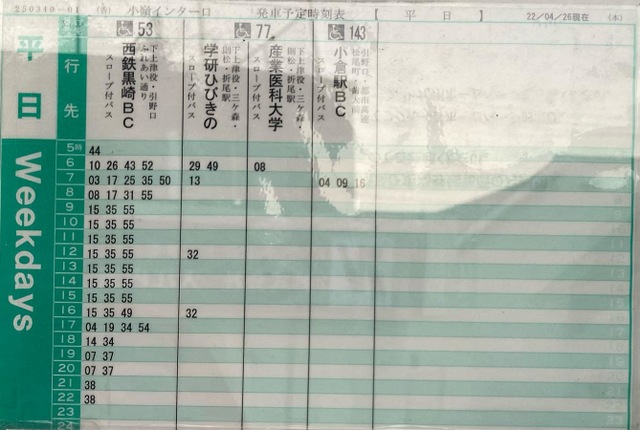 250340-01 (香) 小嶺インター口 発車予定時刻表 【 平 日 】 22/04/26現在 (本)
平日
Weekdays
行先
53
西鉄黒崎BC
下上津役・引野口
ふれあい通り
スロープ付バス
学研ひびきの
下上津役・三ケ森・
則松・折尾駅
スロープ付バス
77
産業医科大学
下上津役・三ケ森・
則松・折尾駅
スロープ付バス
143
小倉駅BC
スロープ付バス
5時 44
6 10 26 43 52 29 49 08
7 03 17 25 35 50 13 04 09 16
8 08 17 31 55
9 15 35 55
10 15 35 55
11 15 35 55
12 15 35 55 32
13 15 35 55
14 15 35 55
15 15 35 55
16 15 35 49 32
17 04 19 34 54
18 14 34
19 07 37
20 07 37
21 38
22 38
23
24